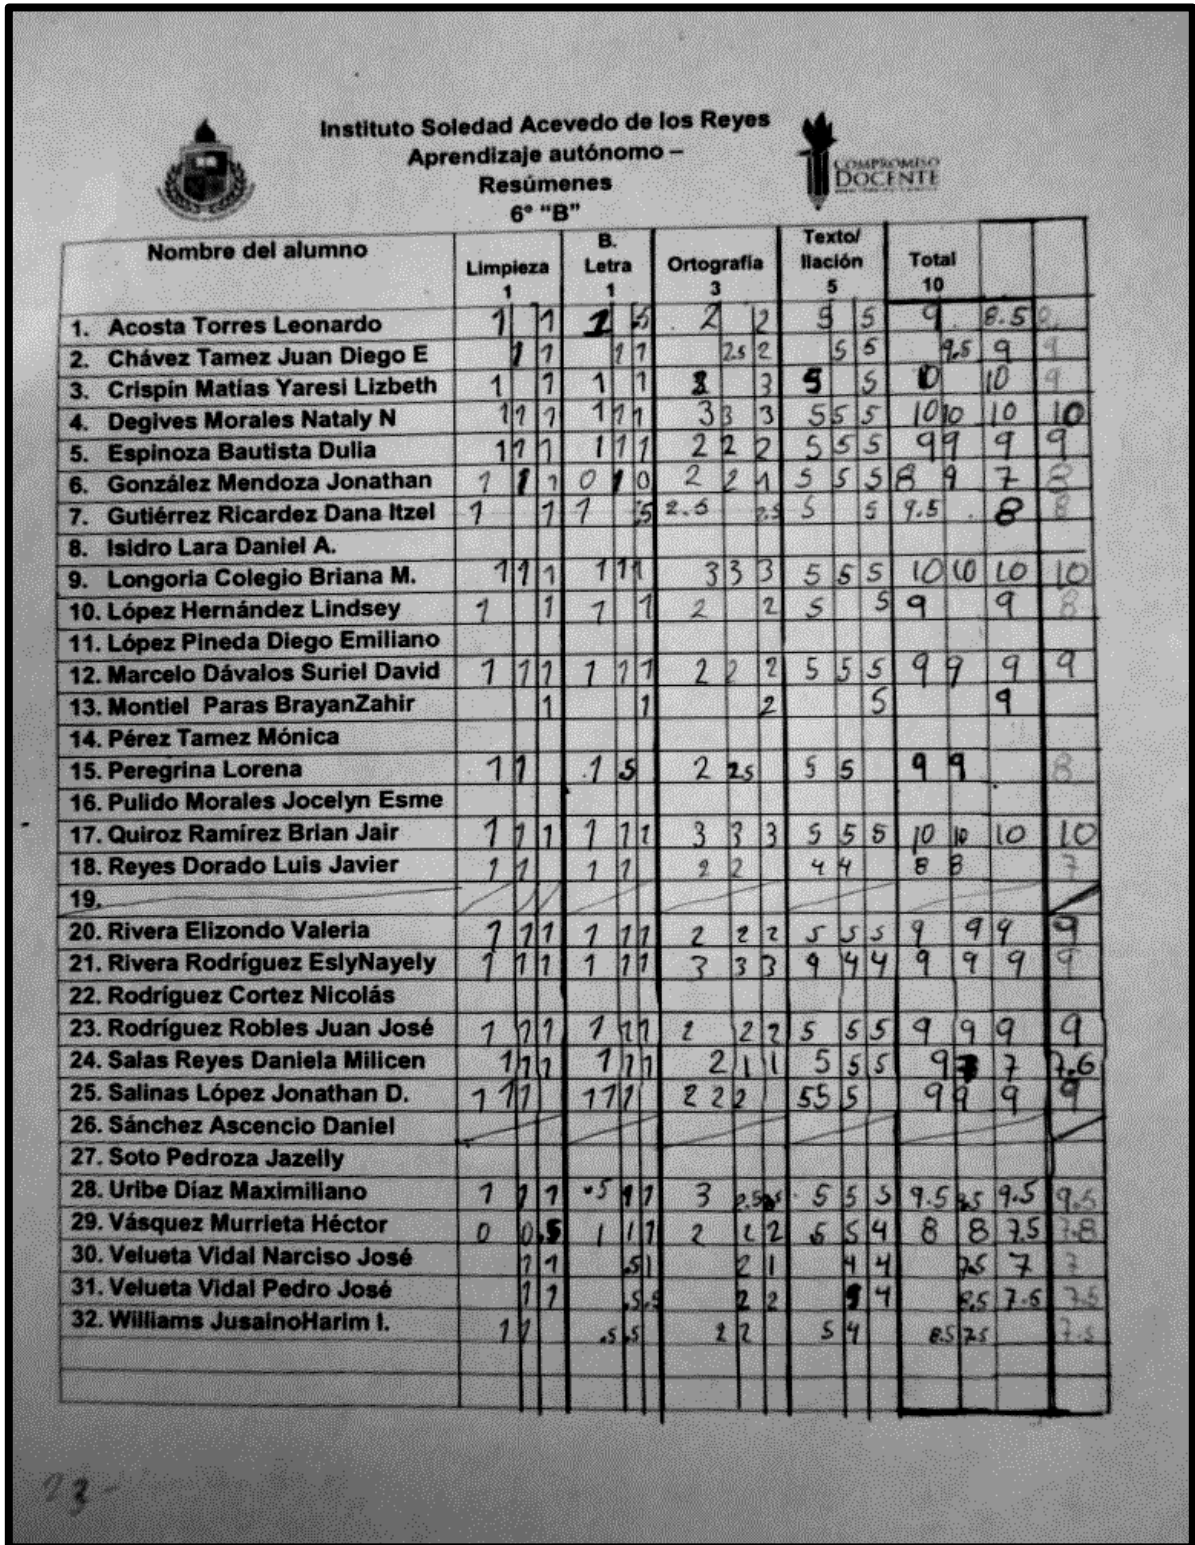 Instituto Soledad Acevedo de los Reyes
Aprendizaje autónomo –
Resúmenes
6° “B”
COMPROMISO
DOCENTE
Nombre del alumno Limpieza 1 B. Letra 1 Ortografía 3 Texto/ Ilación 5 Total 10
1. Acosta Torres Leonardo 1 1 1 .5 2 2 5 5 9 8.5
2. Chávez Tamez Juan Diego E 1 1 1 1 2.5 2 5 5 9.5 9 9
3. Crispín Matías Yaresi Lizbeth 1 1 1 1 3 5 5 10 10 9
4. Degives Morales Nataly N 1 1 1 1 1 1 3 3 3 5 5 5 10 10 10 10
5. Espinoza Bautista Dulia 1 1 1 1 1 1 2 2 2 5 5 5 9 9 9 9
6. González Mendoza Jonathan 1 1 1 0 1 0 2 2 1 5 5 5 8 9 7 8
7. Gutiérrez Ricardez Dana Itzel 1 1 1 .5 2.5 2.5 5 5 9.5 8 8
8. Isidro Lara Daniel A.
9. Longoria Colegio Briana M. 1 1 1 1 1 1 3 3 3 5 5 5 10 10 10 10
10. López Hernández Lindsey 1 1 1 1 2 2 5 5 9 9 8
11. López Pineda Diego Emiliano
12. Marcelo Dávalos Suriel David 1 1 1 1 1 1 2 2 2 5 5 5 9 9 9 9
13. Montiel Paras BrayanZahir 1 1 2 5 9
14. Pérez Tamez Mónica
15. Peregrina Lorena 1 1 1 .5 2 2.5 5 5 9 9 8
16. Pulido Morales Jocelyn Esme
17. Quiroz Ramírez Brian Jair 1 1 1 1 1 1 3 3 3 5 5 5 10 10 10 10
18. Reyes Dorado Luis Javier 1 1 1 1 2 2 4 4 8 8 7
19.
20. Rivera Elizondo Valeria 1 1 1 1 1 1 2 2 2 5 5 5 9 9 9 9
21. Rivera Rodríguez EslyNayely 1 1 1 1 1 1 3 3 3 4 4 9 9 9 9
22. Rodríguez Cortez Nicolás
23. Rodríguez Robles Juan José 1 1 1 1 1 1 2 2 2 5 5 5 9 9 9 9
24. Salas Reyes Daniela Milicen 1 1 1 1 1 1 2 1 1 5 5 5 9 7 7.6
25. Salinas López Jonathan D. 1 1 1 1 1 1 2 2 2 5 5 5 9 9 9 9
26. Sánchez Ascencio Daniel
27. Soto Pedroza Jazelly
28. Uribe Díaz Maximiliano 1 1 1 .5 1 1 3 2.5 5 5 5 9.5 9.5 9.5
29. Vásquez Murrieta Héctor 0 0 .5 1 1 1 2 2 2 5 5 4 8 8 7.5 7.8
30. Velueta Vidal Narciso José 1 1 .5 1 2 1 4 4 7.5 7 7
31. Velueta Vidal Pedro José 1 1 .5 .5 2 2 4 8.5 7.5 7.5
32. Williams JusainoHarim I. 1 1 .5 .5 2 2 5 4 8.5 7.5 7.5